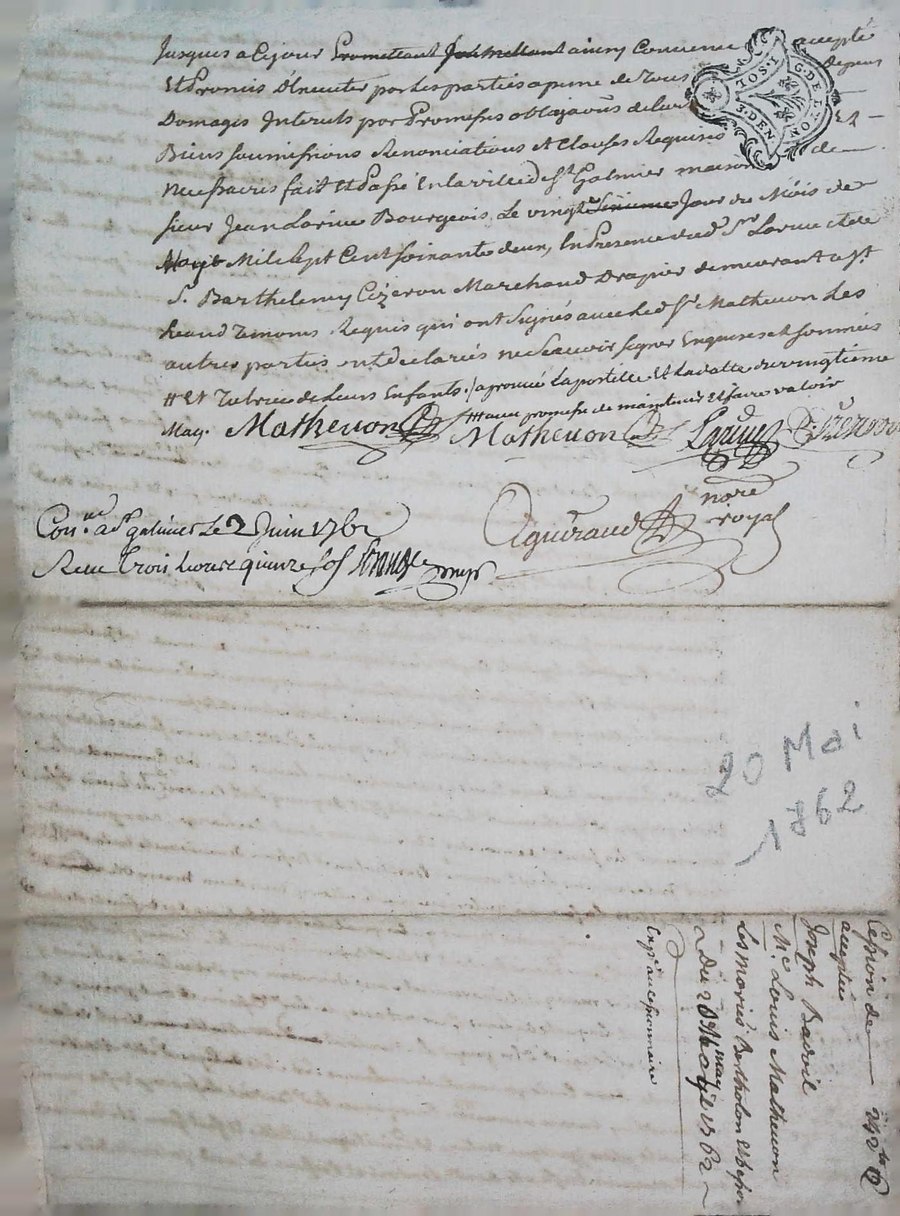 Jusques a Ce jour Promettant Promettant ainsy Convenu accepté
Et Promis D'Executer par Les parties a peine de Tous depens
Domages Interets par Promesses obligaõns de leurs
G. DE LYON
1. SOL
3. DEN
Biens soumissions Renonciations Et Clauses Requises Et
Necessaires fait Et Passé En la ville de St. Galmier maison de
sieur Jean Larive Bourgeois, Le vingt Jour du Móis de
May Mil Sept Cent soixante deux, En Presence dud. Sr. Larive et de
S. Barthelemy Cizeron Marchand Drapier demeurant a St.
heand Temoins Requis qui ont Signés avec Led Sr. Matheuon Les
autres parties ont declarés ne Scauoir signer Enquises et sommées
# Et de Leurs Enfants. / aprouué L'apostille Et La datte du vingtieme
May. Matheuon ### avec promesse de maintenir Et faire valoir
Matheuon Larive Cizeron
Con.ué a St. galmier Le 2 Juin 1762
Receu Trois Livres quinze sols
Aguiraud noré royal
20 Mai
1862
Cession de 242 lt
acceptée
Joseph Badoil
Me. Louis Matheuon
Les mariés Bertholon Et
Du 20 May may 1762
Exp.on au cessionnaire